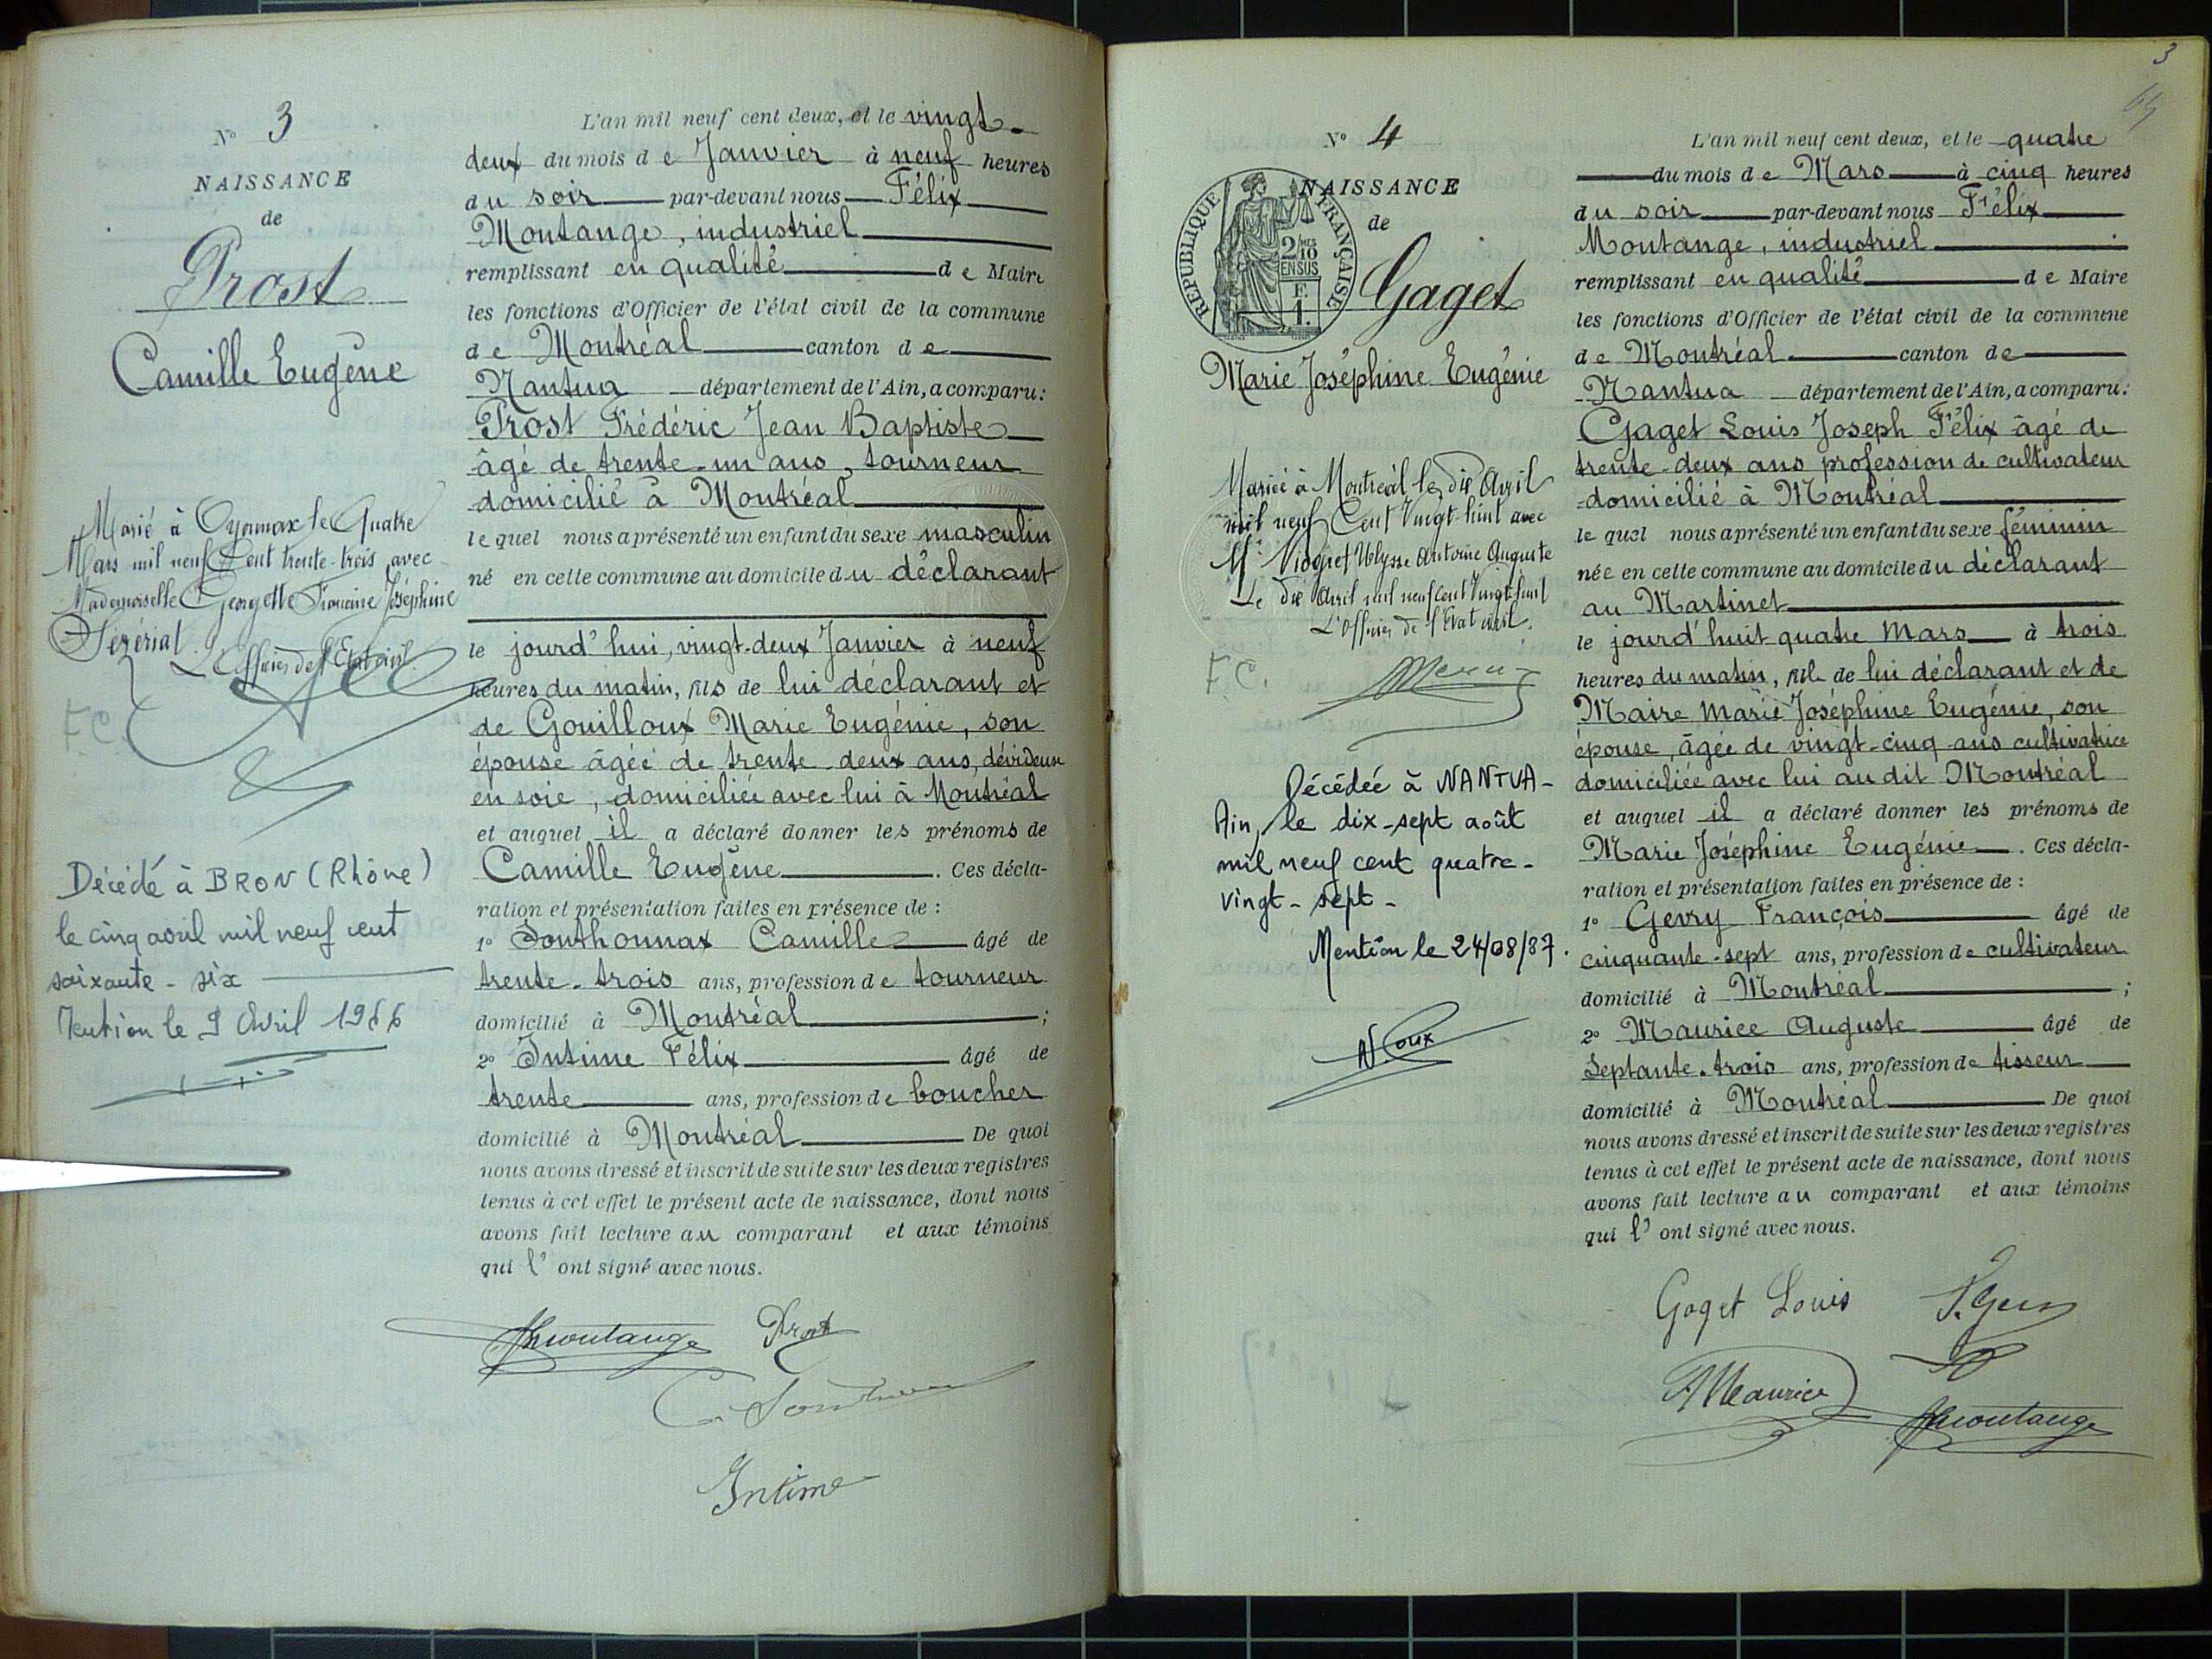 N° 3
NAISSANCE
de
Prost
Camille Eugène
Marié à Oyonnax le Quatre
Mars mil neuf Cent trente-trois avec
Mademoiselle Georgette Francine Joséphine
L'Officier de l'Etat civil
F.C.
Décédé à BRON (Rhône)
le cinq avril mil neuf cent
soixante-six
Mention le 9 Avril 1966
L'an mil neuf cent deux, et le vingt-
deux du mois de Janvier à neuf heures
du soir par-devant nous Félix
Montange, industriel
remplissant en qualité de Maire
les fonctions d'Officier de l'état civil de la commune
de Montréal canton de
Nantua département de l'Ain, a comparu:
Prost Frédéric Jean Baptiste
âgé de trente-un ans, tourneur
domicilié à Montréal
lequel nous a présenté un enfant du sexe masculin
né en cette commune au domicile du déclarant
le jourd'hui, vingt-deux Janvier à neuf
heures du matin, fils de lui déclarant et
de Gouilloux Marie Eugénie, son
épouse âgée de trente-deux ans, dévideuse
en soie, domiciliée avec lui à Montréal
et auquel il a déclaré donner les prénoms de
Camille Eugène. Ces décla-
ration et présentation faites en présence de :
1° Sonthonnax Camille âgé de
trente-trois ans, profession de tourneur
domicilié à Montréal ;
2° Intime Félix âgé de
trente ans, profession de boucher
domicilié à Montréal De quoi
nous avons dressé et inscrit de suite sur les deux registres
tenus à cet effet le présent acte de naissance, dont nous
avons fait lecture au comparant et aux témoins
qui l'ont signé avec nous.
Montange Prost
Intime
3
N° 4
NAISSANCE
de
RÉPUBLIQUE FRANÇAISE
2/10
EN SUS
Gaget
Marie Joséphine Eugénie
Mariée à Montréal le dix Avril
mil neuf Cent Vingt-huit avec
Mr Viognet Ulysse Antoine Auguste
Le dix Avril mil neuf cent Vingt-huit
L'Officier de l'Etat civil.
F.C.
Décédée à NANTUA-
Ain, le dix-sept août
mil neuf cent quatre-
vingt-sept-
Mention le 24/08/87.
L'an mil neuf cent deux, et le quatre
du mois de Mars à cinq heures
du soir par-devant nous Félix
Montange, industriel
remplissant en qualité de Maire
les fonctions d'Officier de l'état civil de la commune
de Montréal canton de
Nantua département de l'Ain, a comparu:
Gaget Louis Joseph Félix âgé de
trente-deux ans profession de cultivateur
domicilié à Montréal
lequel nous a présenté un enfant du sexe féminin
née en cette commune au domicile du déclarant
au Martinet
le jourd'huit quatre Mars à trois
heures du matin, fille de lui déclarant et de
Maire Marie Joséphine Eugénie, son
épouse, âgée de vingt-cinq ans cultivatrice
domiciliée avec lui au dit Montréal
et auquel il a déclaré donner les prénoms de
Marie Joséphine Eugénie. Ces décla-
ration et présentation faites en présence de :
1° Gevry François âgé de
cinquante-sept ans, profession de cultivateur
domicilié à Montréal ;
2° Maurice Auguste âgé de
Septante-trois ans, profession de tisseur
domicilié à Montréal De quoi
nous avons dressé et inscrit de suite sur les deux registres
tenus à cet effet le présent acte de naissance, dont nous
avons fait lecture au comparant et aux témoins
qui l'ont signé avec nous.
Gaget Louis
A Maurice Montange